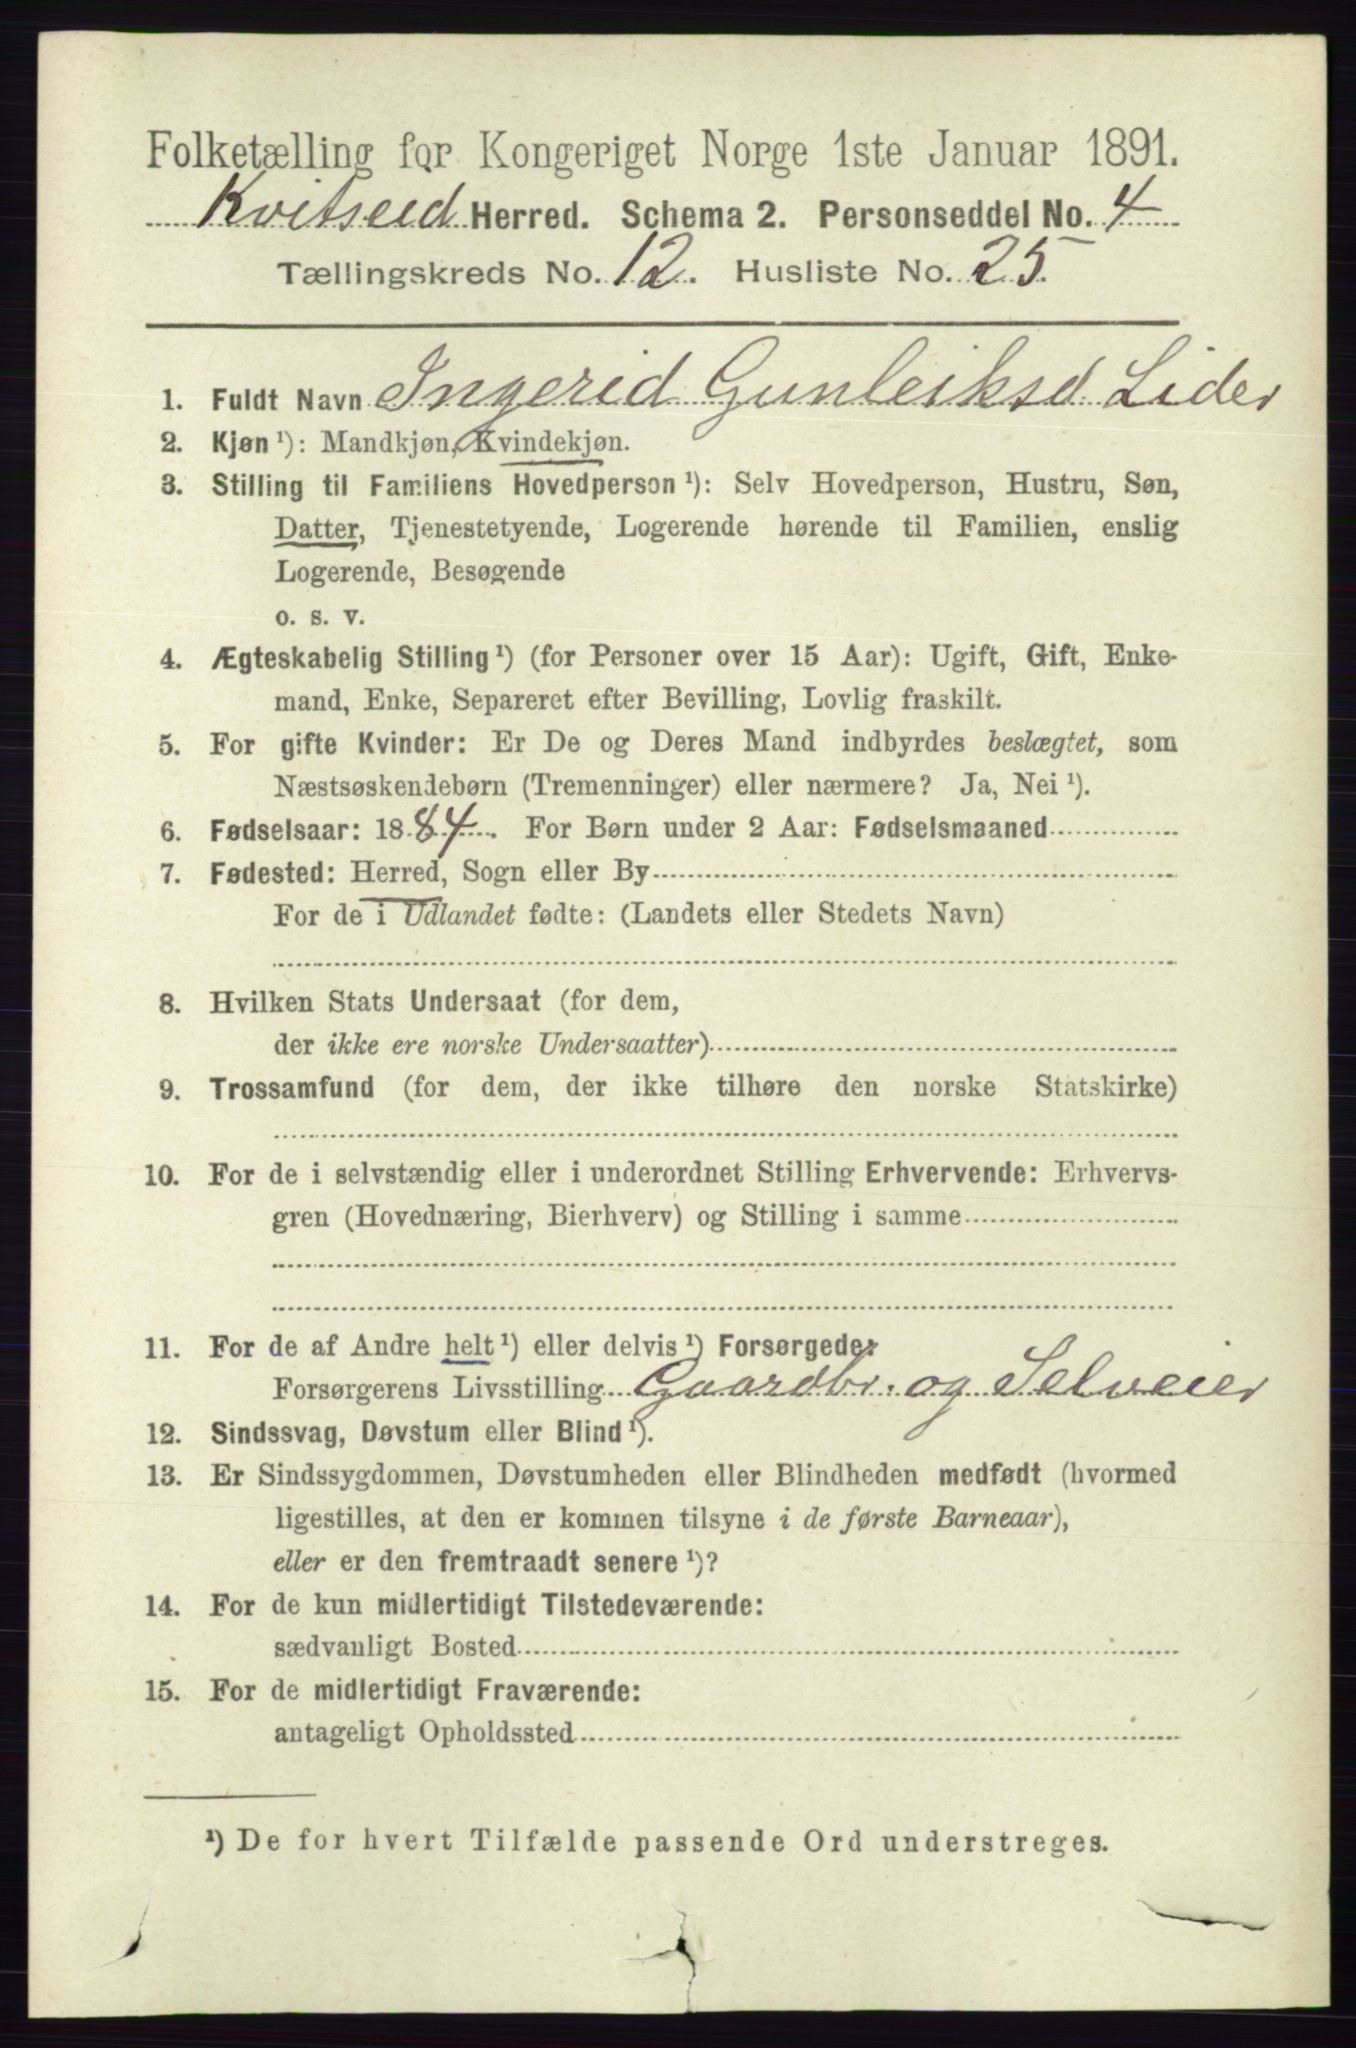 Folketælling for Kongeriget Norge 1ste Januar 1891.
Kvitseid Herred. Schema 2. Personseddel No. 4
Tællingskreds No. 12. Husliste No. 25.
1. Fuldt Navn Ingerid Gunleiksd. Lider
2. Kjøn ¹): Mandkjøn, Kvindekjøn.
3. Stilling til Familiens Hovedperson ¹): Selv Hovedperson, Hustru, Søn,
Datter, Tjenestetyende, Logerende hørende til Familien, enslig
Logerende, Besøgende
o. s. v.
4. Ægteskabelig Stilling ¹) (for Personer over 15 Aar): Ugift, Gift, Enke-
mand, Enke, Separeret efter Bevilling, Lovlig fraskilt.
5. For gifte Kvinder: Er De og Deres Mand indbyrdes beslægtet, som
Næstsøskendebørn (Tremenninger) eller nærmere? Ja, Nei ¹).
6. Fødselsaar: 1884. For Børn under 2 Aar: Fødselsmaaned
7. Fødested: Herred, Sogn eller By
For de i Udlandet fødte: (Landets eller Stedets Navn)
8. Hvilken Stats Undersaat (for dem,
der ikke ere norske Undersaatter)
9. Trossamfund (for dem, der ikke tilhøre den norske Statskirke)
10. For de i selvstændig eller i underordnet Stilling Erhvervende: Erhvervs-
gren (Hovednæring, Bierhverv) og Stilling i samme
11. For de af Andre helt ¹) eller delvis ¹) Forsørgede:
Forsørgerens Livsstilling Gaardbr. og Selveier
12. Sindssvag, Døvstum eller Blind ¹).
13. Er Sindssygdommen, Døvstumheden eller Blindheden medfødt (hvormed
ligestilles, at den er kommen tilsyne i de første Barneaar),
eller er den fremtraadt senere ¹)?
14. For de kun midlertidigt Tilstedeværende:
sædvanligt Bosted
15. For de midlertidigt Fraværende:
antageligt Opholdssted
¹) De for hvert Tilfælde passende Ord understreges.